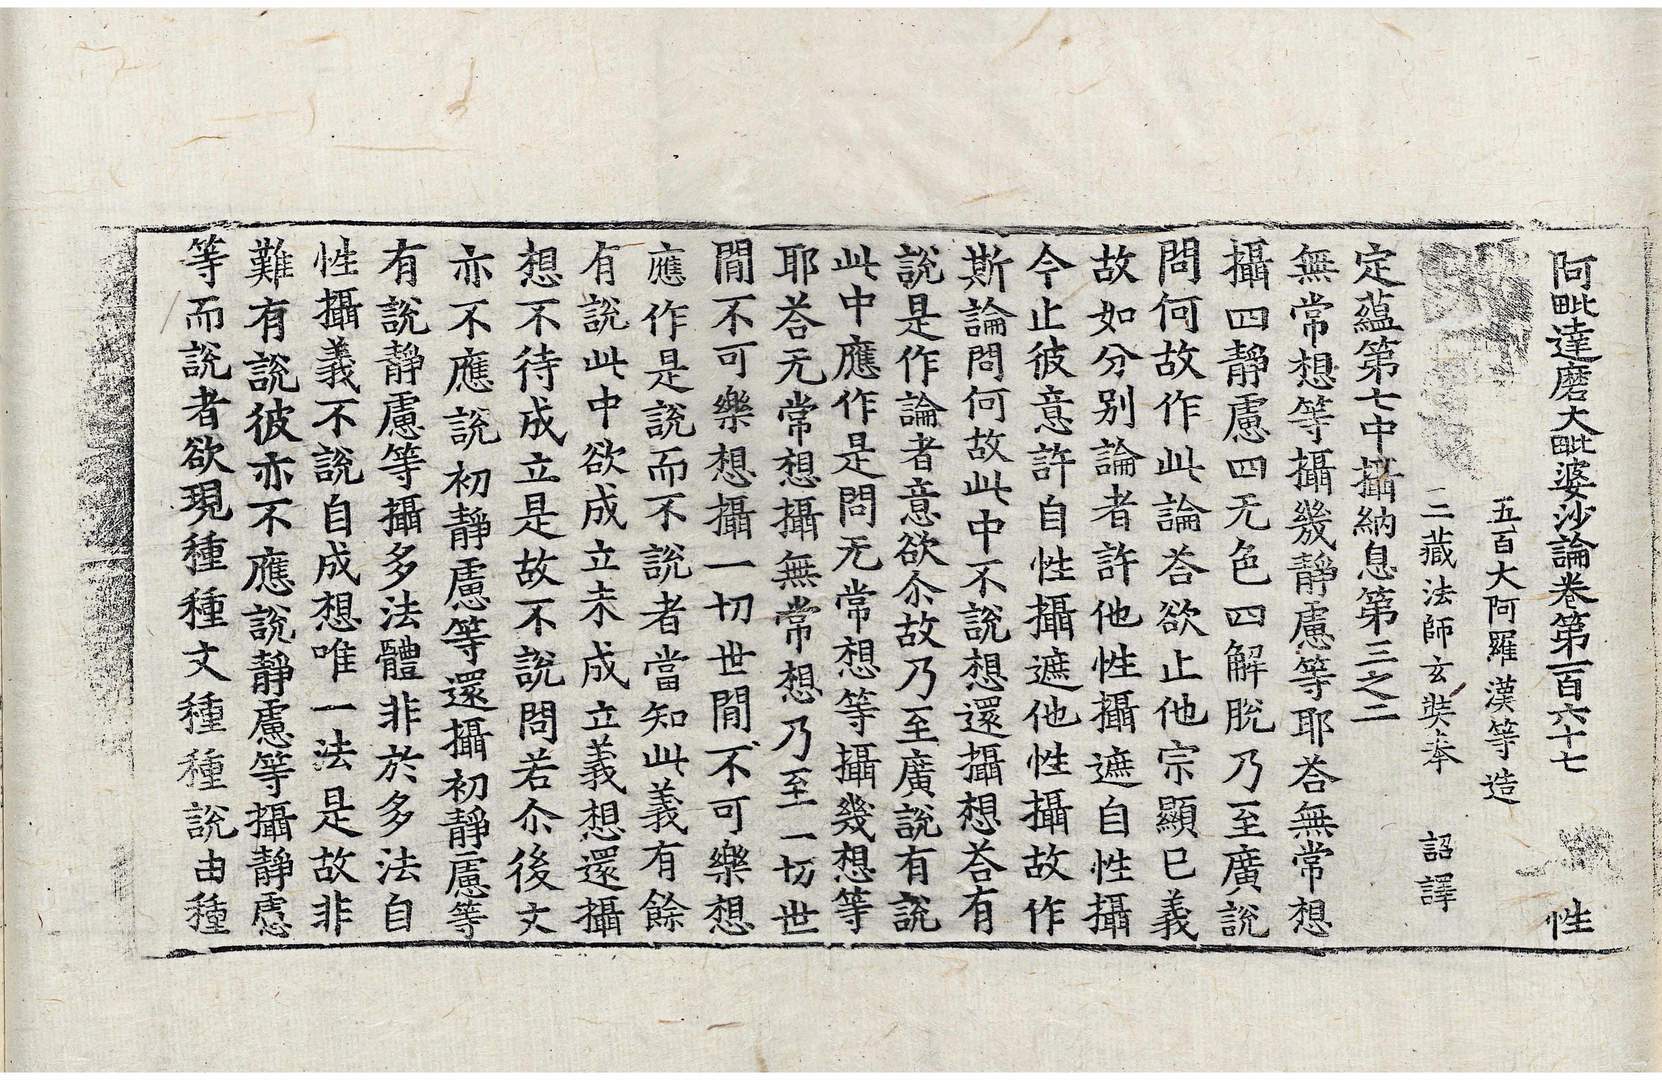 阿毗達磨大毗婆沙論卷第一百六十七 性
五百大阿羅漢等造
三藏法師玄奘奉 詔譯
定蘊第七中攝納息第三之二
無常想等攝幾靜慮等耶荅無常想
攝四靜慮四无色四解脫乃至廣說
問何故作此論荅欲止他宗顯已義
故如分別論者許他性攝遮自性攝
今止彼意許自性攝遮他性攝故作
斯論問何故此中不說想還攝想荅有
說是作論者意欲尒故乃至廣說有說
此中應作是問无常想等攝幾想等
耶荅无常想攝無常想乃至一切世
閒不可樂想攝一切世閒不可樂想
應作是說而不說者當知此義有餘
有說此中欲成立未成立義想還攝
想不待成立是故不說問若尒後文
亦不應說初靜慮等還攝初靜慮等
有說靜慮等攝多法體非於多法自
性攝義不說自成想唯一法是故非
難有說彼亦不應說靜慮等攝靜慮
等而說者欲現種種文種種說由種